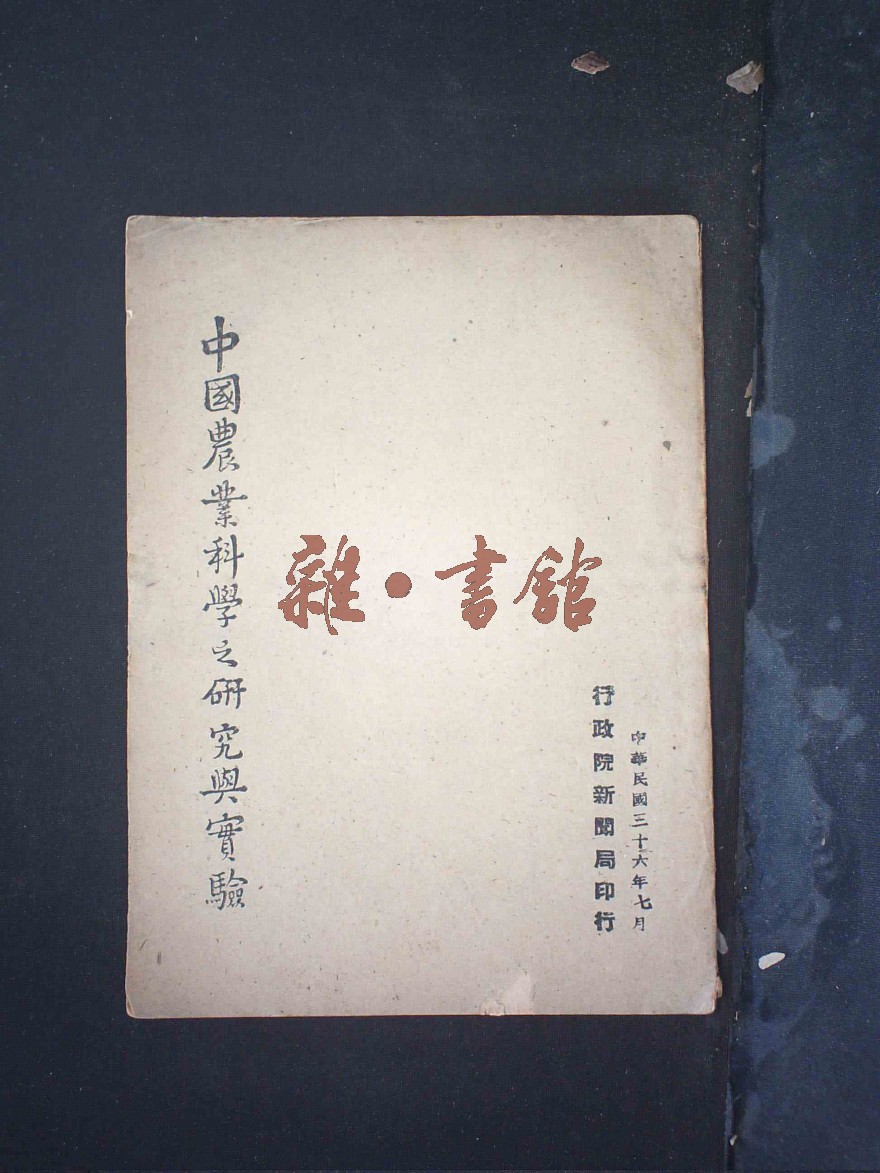 中華民國三十六年七月
行政院新聞局印行
雜•書館
中國農業科學之研究與實驗